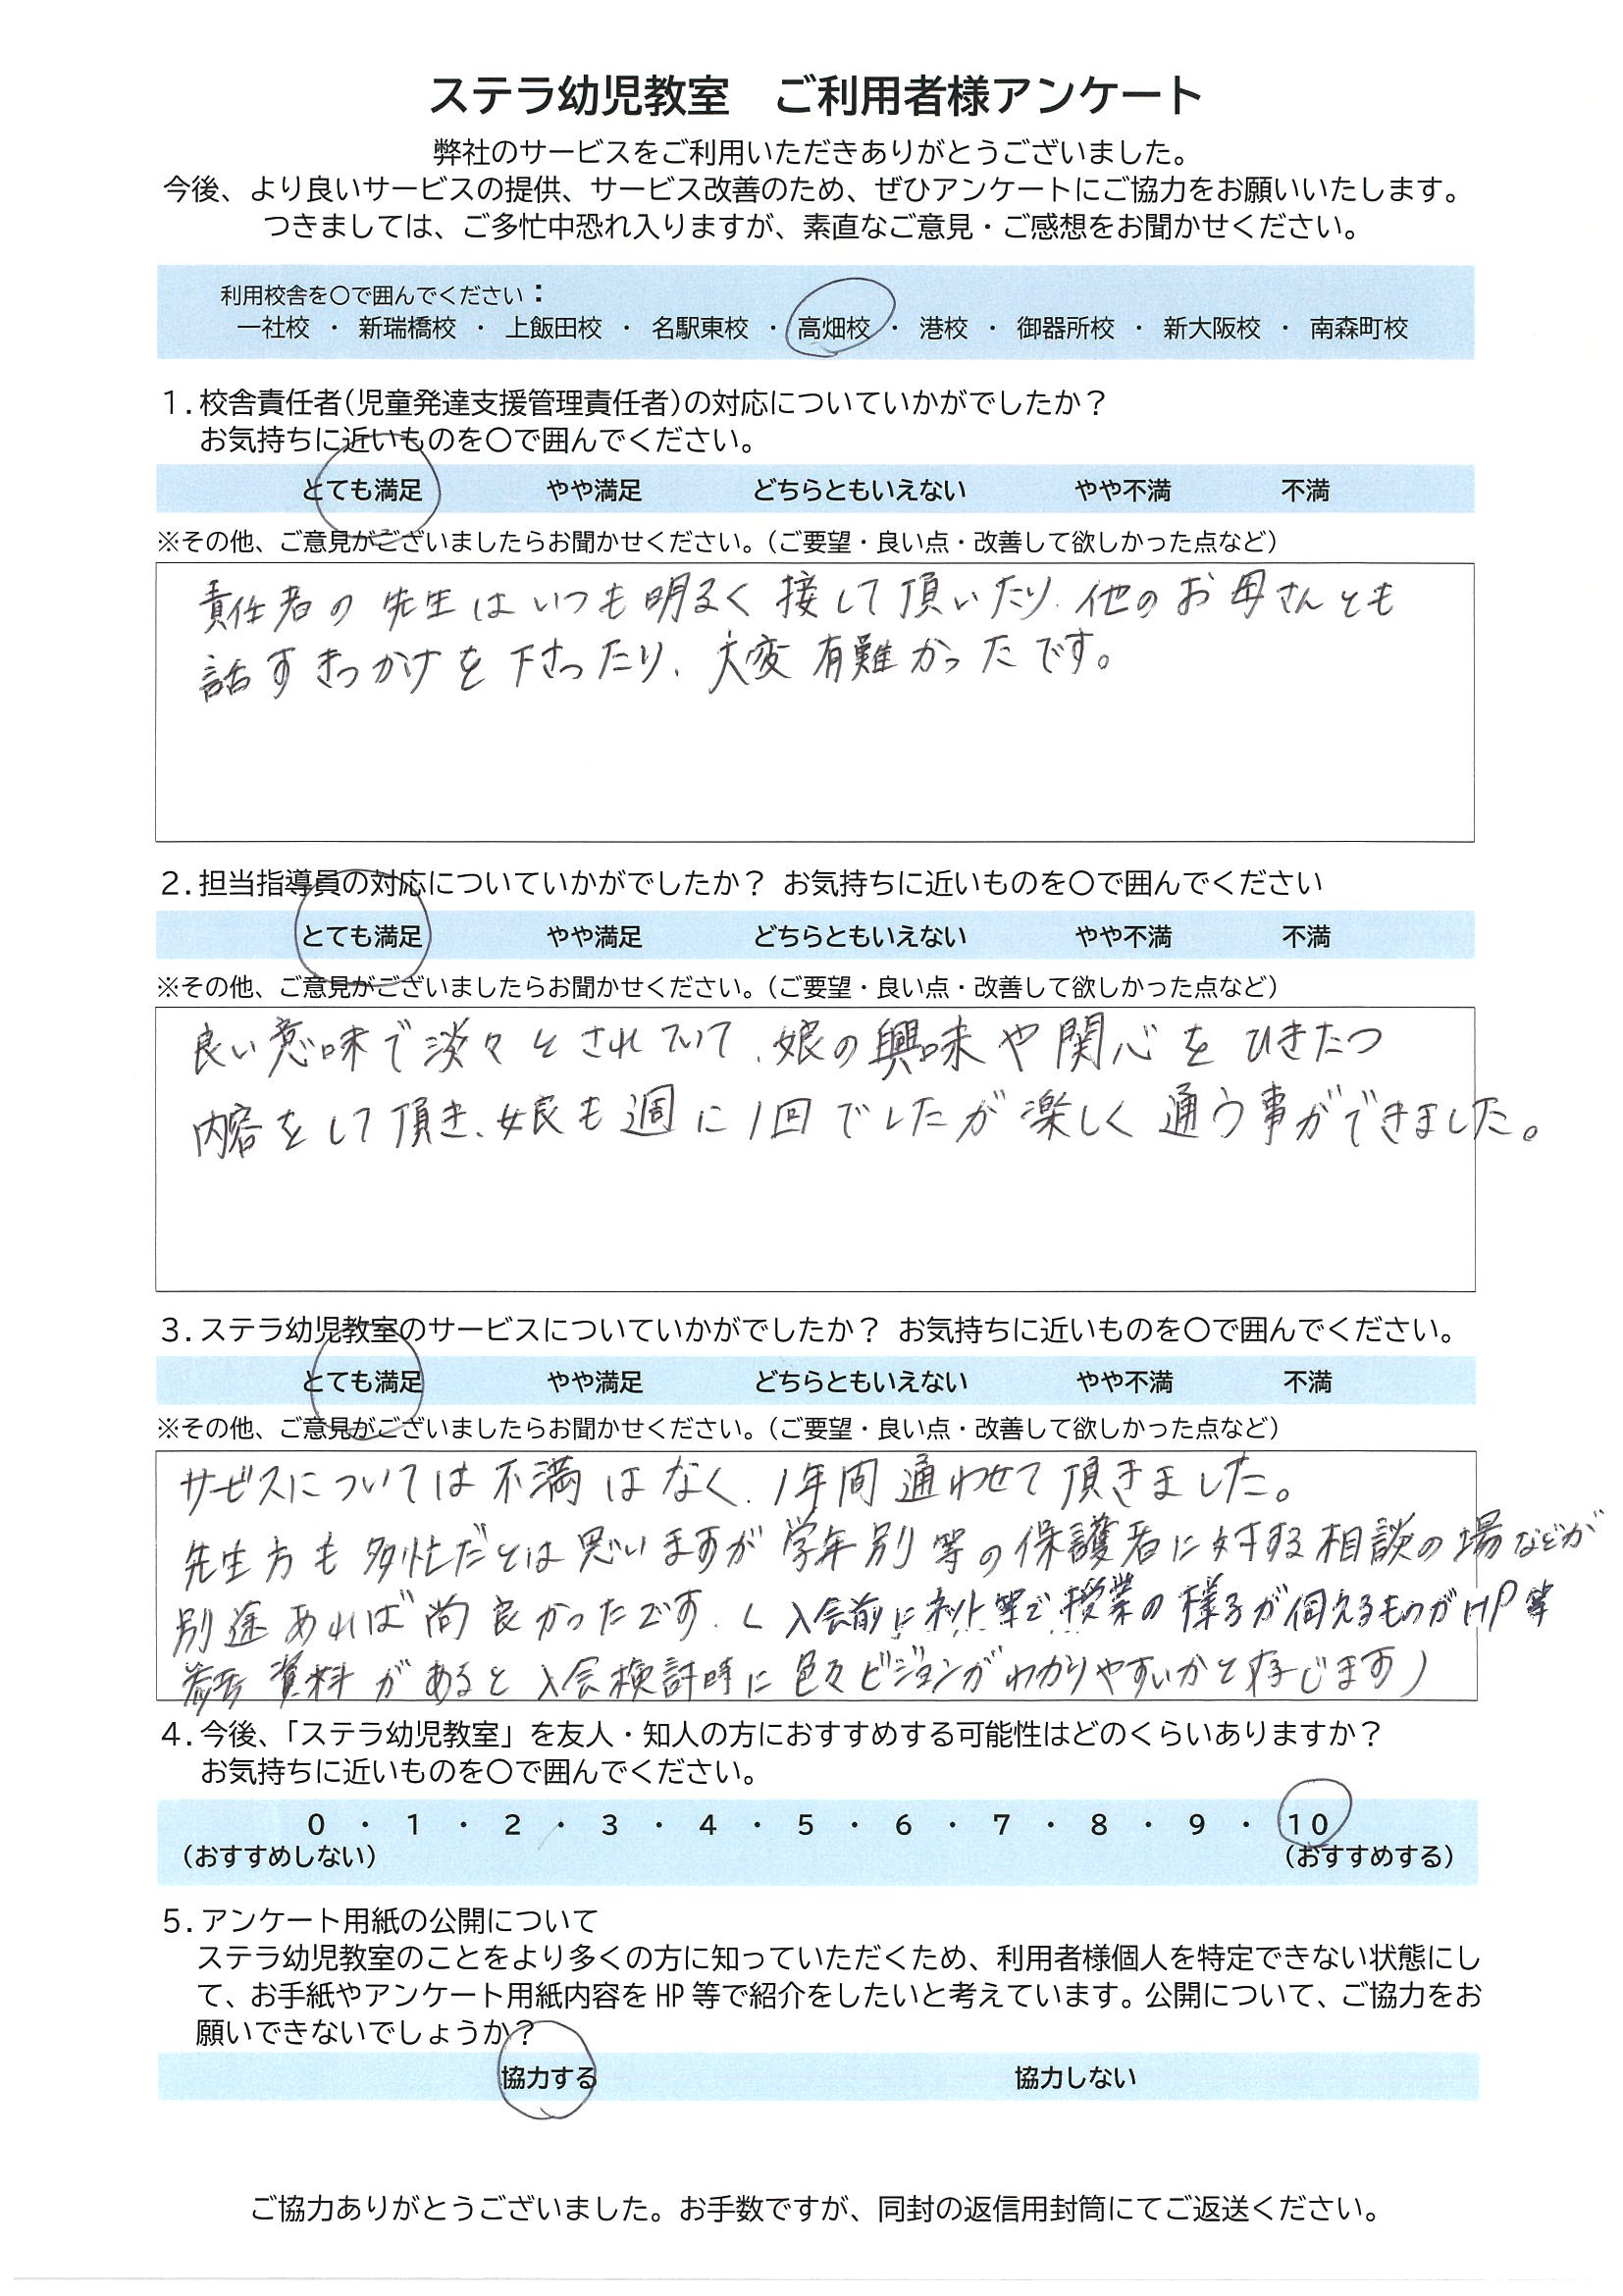 ステラ幼児教室　ご利用者様アンケート
弊社のサービスをご利用いただきありがとうございました。
今後、より良いサービスの提供、サービス改善のため、ぜひアンケートにご協力をお願いいたします。
つきましては、ご多忙中恐れ入りますが、素直なご意見・ご感想をお聞かせください。
利用校舎を〇で囲んでください：
一社校 ・ 新瑞橋校 ・ 上飯田校 ・ 名駅東校 ・ 高畑校 ・ 港校 ・ 御器所校 ・ 新大阪校 ・ 南森町校
１．校舎責任者（児童発達支援管理責任者）の対応についていかがでしたか？
お気持ちに近いものを〇で囲んでください。
とても満足 やや満足 どちらともいえない やや不満 不満
※その他、ご意見がございましたらお聞かせください。（ご要望・良い点・改善して欲しかった点など）
責任者の先生はいつも明るく接して頂いたり、他のお母さんとも
話すきっかけを下さったり、大変有難かったです。
２．担当指導員の対応についていかがでしたか？ お気持ちに近いものを〇で囲んでください
とても満足 やや満足 どちらともいえない やや不満 不満
※その他、ご意見がございましたらお聞かせください。（ご要望・良い点・改善して欲しかった点など）
良い意味で淡々とされていて、娘の興味や関心をひきたつ
内容をして頂き、娘も週に1回でしたが楽しく通う事ができました。
３．ステラ幼児教室のサービスについていかがでしたか？ お気持ちに近いものを〇で囲んでください。
とても満足 やや満足 どちらともいえない やや不満 不満
※その他、ご意見がございましたらお聞かせください。（ご要望・良い点・改善して欲しかった点など）
サービスについては不満はなく、1年間通わせて頂きました。
先生方も多忙だとは思いますが学年別等の保護者に対する相談の場などが
別途あれば尚良かったです。（入会前にネット等で授業の様子が伺えるものがHP等
参考資料があると入会検討時に色々ビジョンがわかりやすいかと存じます）
４．今後、「ステラ幼児教室」を友人・知人の方におすすめする可能性はどのくらいありますか？
お気持ちに近いものを〇で囲んでください。
０ ・ １ ・ ２ ・ ３ ・ ４ ・ ５ ・ ６ ・ ７ ・ ８ ・ ９ ・ １０
（おすすめしない） （おすすめする）
５．アンケート用紙の公開について
ステラ幼児教室のことをより多くの方に知っていただくため、利用者様個人を特定できない状態にし
て、お手紙やアンケート用紙内容を HP 等で紹介をしたいと考えています。公開について、ご協力をお
願いできないでしょうか？
協力する 協力しない
ご協力ありがとうございました。お手数ですが、同封の返信用封筒にてご返送ください。